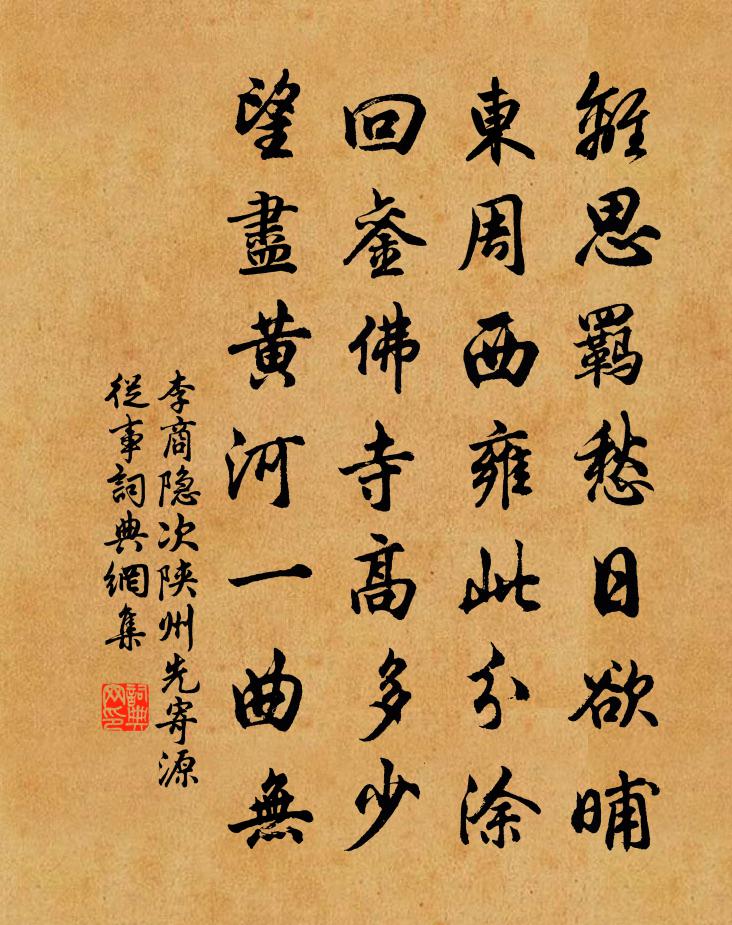 離思羈愁日欲晡
東周西雍此分涂
回銮佛寺高多少
望盡黄河一曲無
李商隐次陕州先寄源
從事詞典網集
詞典
网印